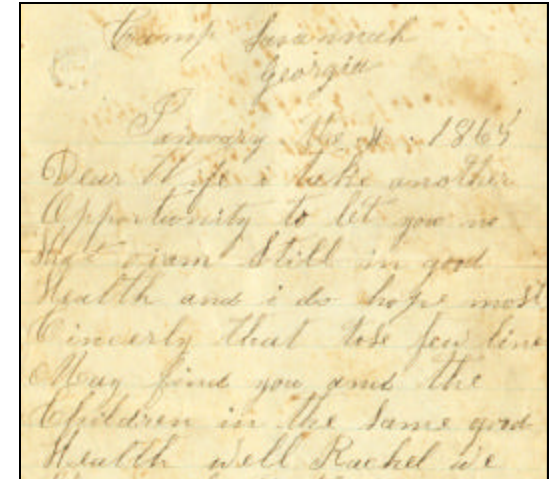 Camp Savannah
Georgia
January the 4 1865
Dear Wife i take another
Opportunity to let you no
that i am Still in good
Health and i do hope most
Cincerly that tose few line
May find you and the
Children in the Same good
Health well Rachel we